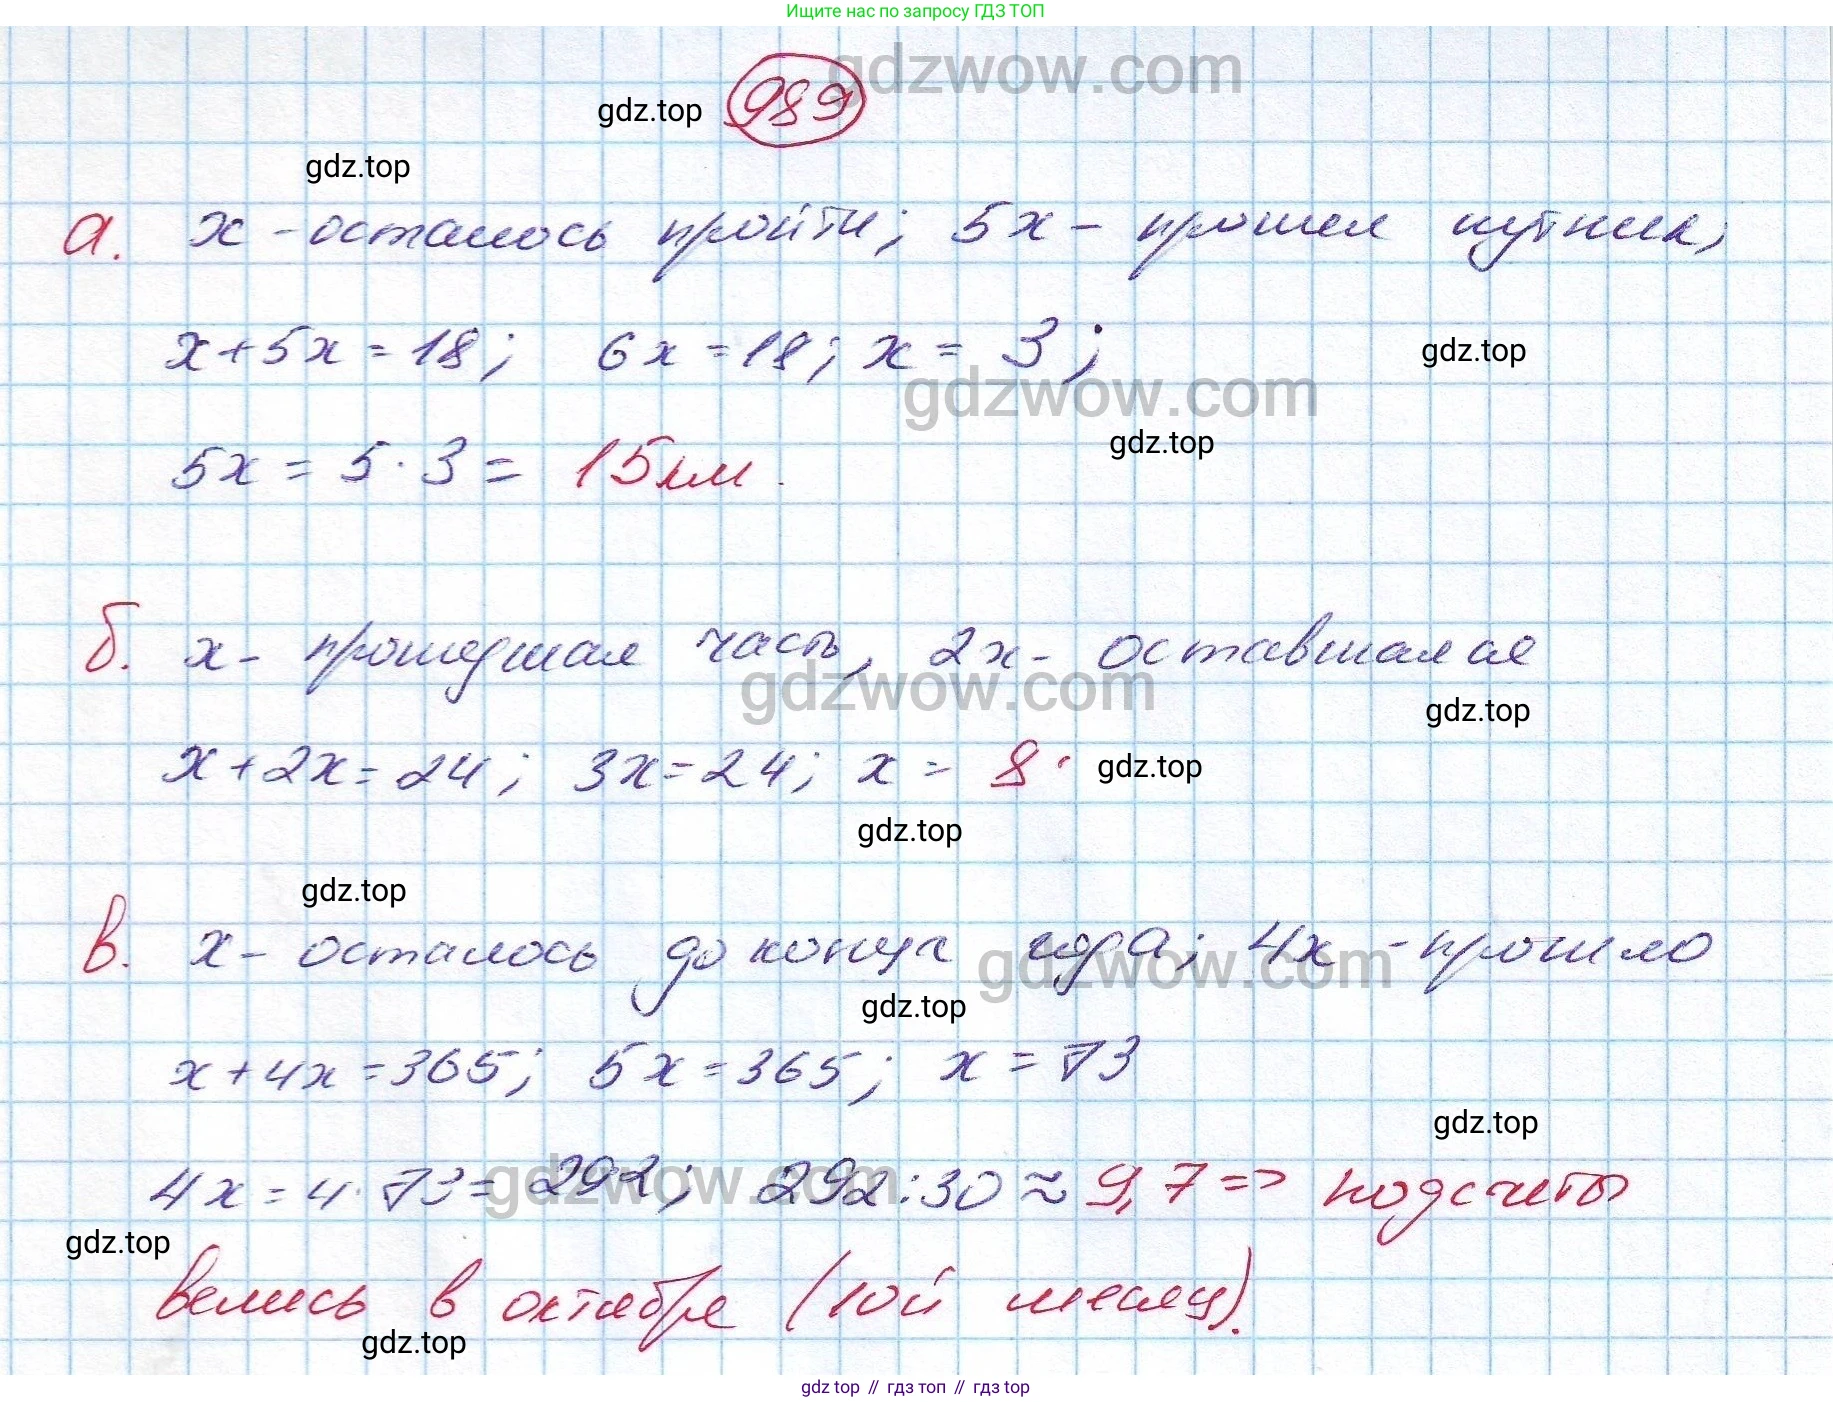 Ищите нас по запросу ГДЗ ТОП
gdzwow.com
gdz.top 989
gdz.top
а. x - осталось пройти; 5x - прошел путник;
x+5x=18; 6x=18; x=3;
gdz.top
gdzwow.com
gdz.top
5x = 5·3 = 15км.
б. x - прошедшая часть, 2x - оставшаяся
gdzwow.com
gdz.top
x+2x=24; 3x=24; x = 8.
gdz.top
gdz.top
gdz.top
в. x - осталось до конца года; 4x - прошло
gdzwow.com
gdz.top
x+4x=365; 5x=365; x=73
gdz.top
4x=4·73=292; 292:30≈9,7 => подсчеты
gdzwow.com
gdz.top
велись в октябре (10й месяц).
gdz.top
gdz top // гдз топ // гдз top